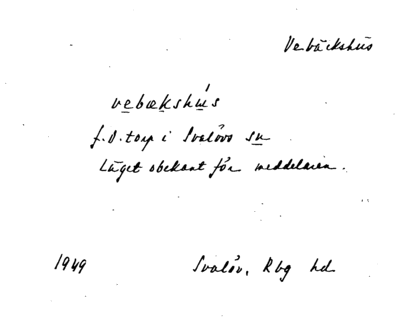 Vebäckshus
vebækshús
f.d. torp i Svalövs sn
Läget obekant för meddelaren.
1949
Svalöv, Rbg hd